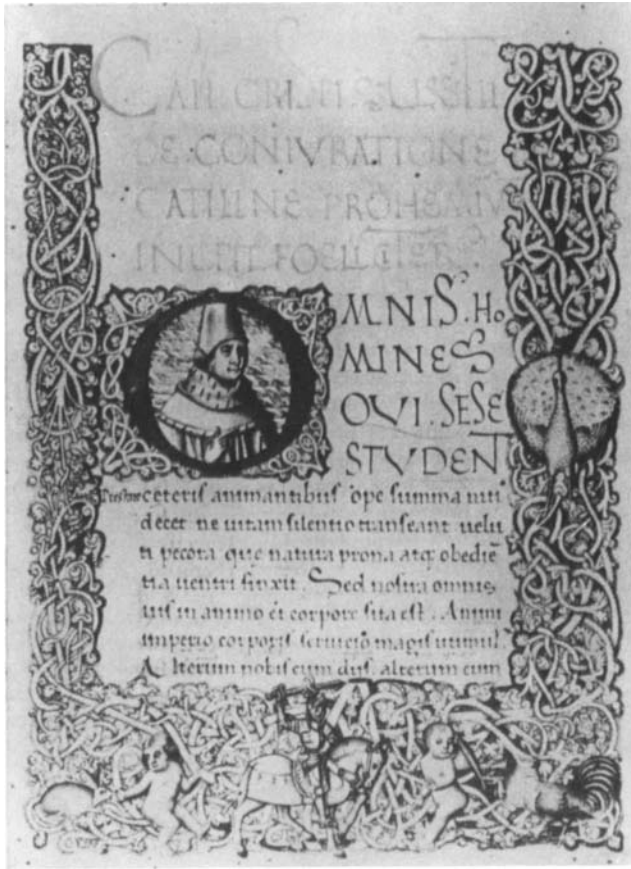 CAII CRISPI SALUSTII
DE CONIVRATIONE
CATILINE PROHEMIV
INCIPIT FOELICITER
OMNIS. Ho
MINES
QVI. SESE
STVDENT
ceteris animantibus ope summa niti
decet ne uitam silentio transeant uelu
ti pecora que natura prona atq; obediē
tia uentri finxit. Sed nostra omnis
uis in animo et corpore sita est. Animi
imperio corporis seruicio magis utimur.
Alterum nobis cum diis. alterum cum